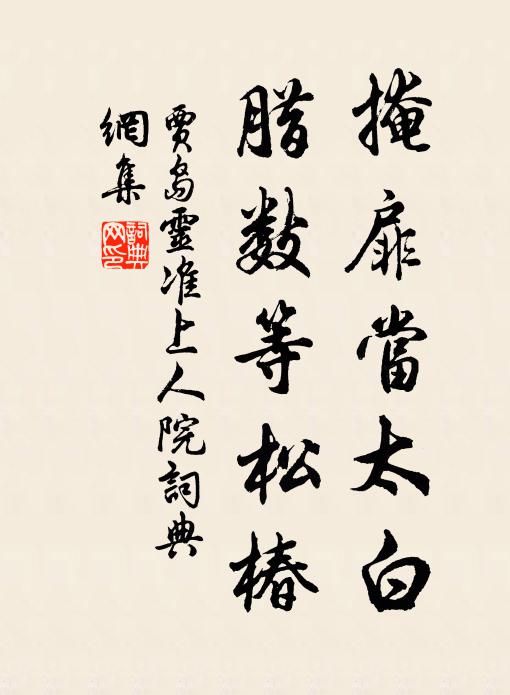 掩扉當太白
腊數等松椿
賈島靈准上人院詞典
網集
詞典
网印